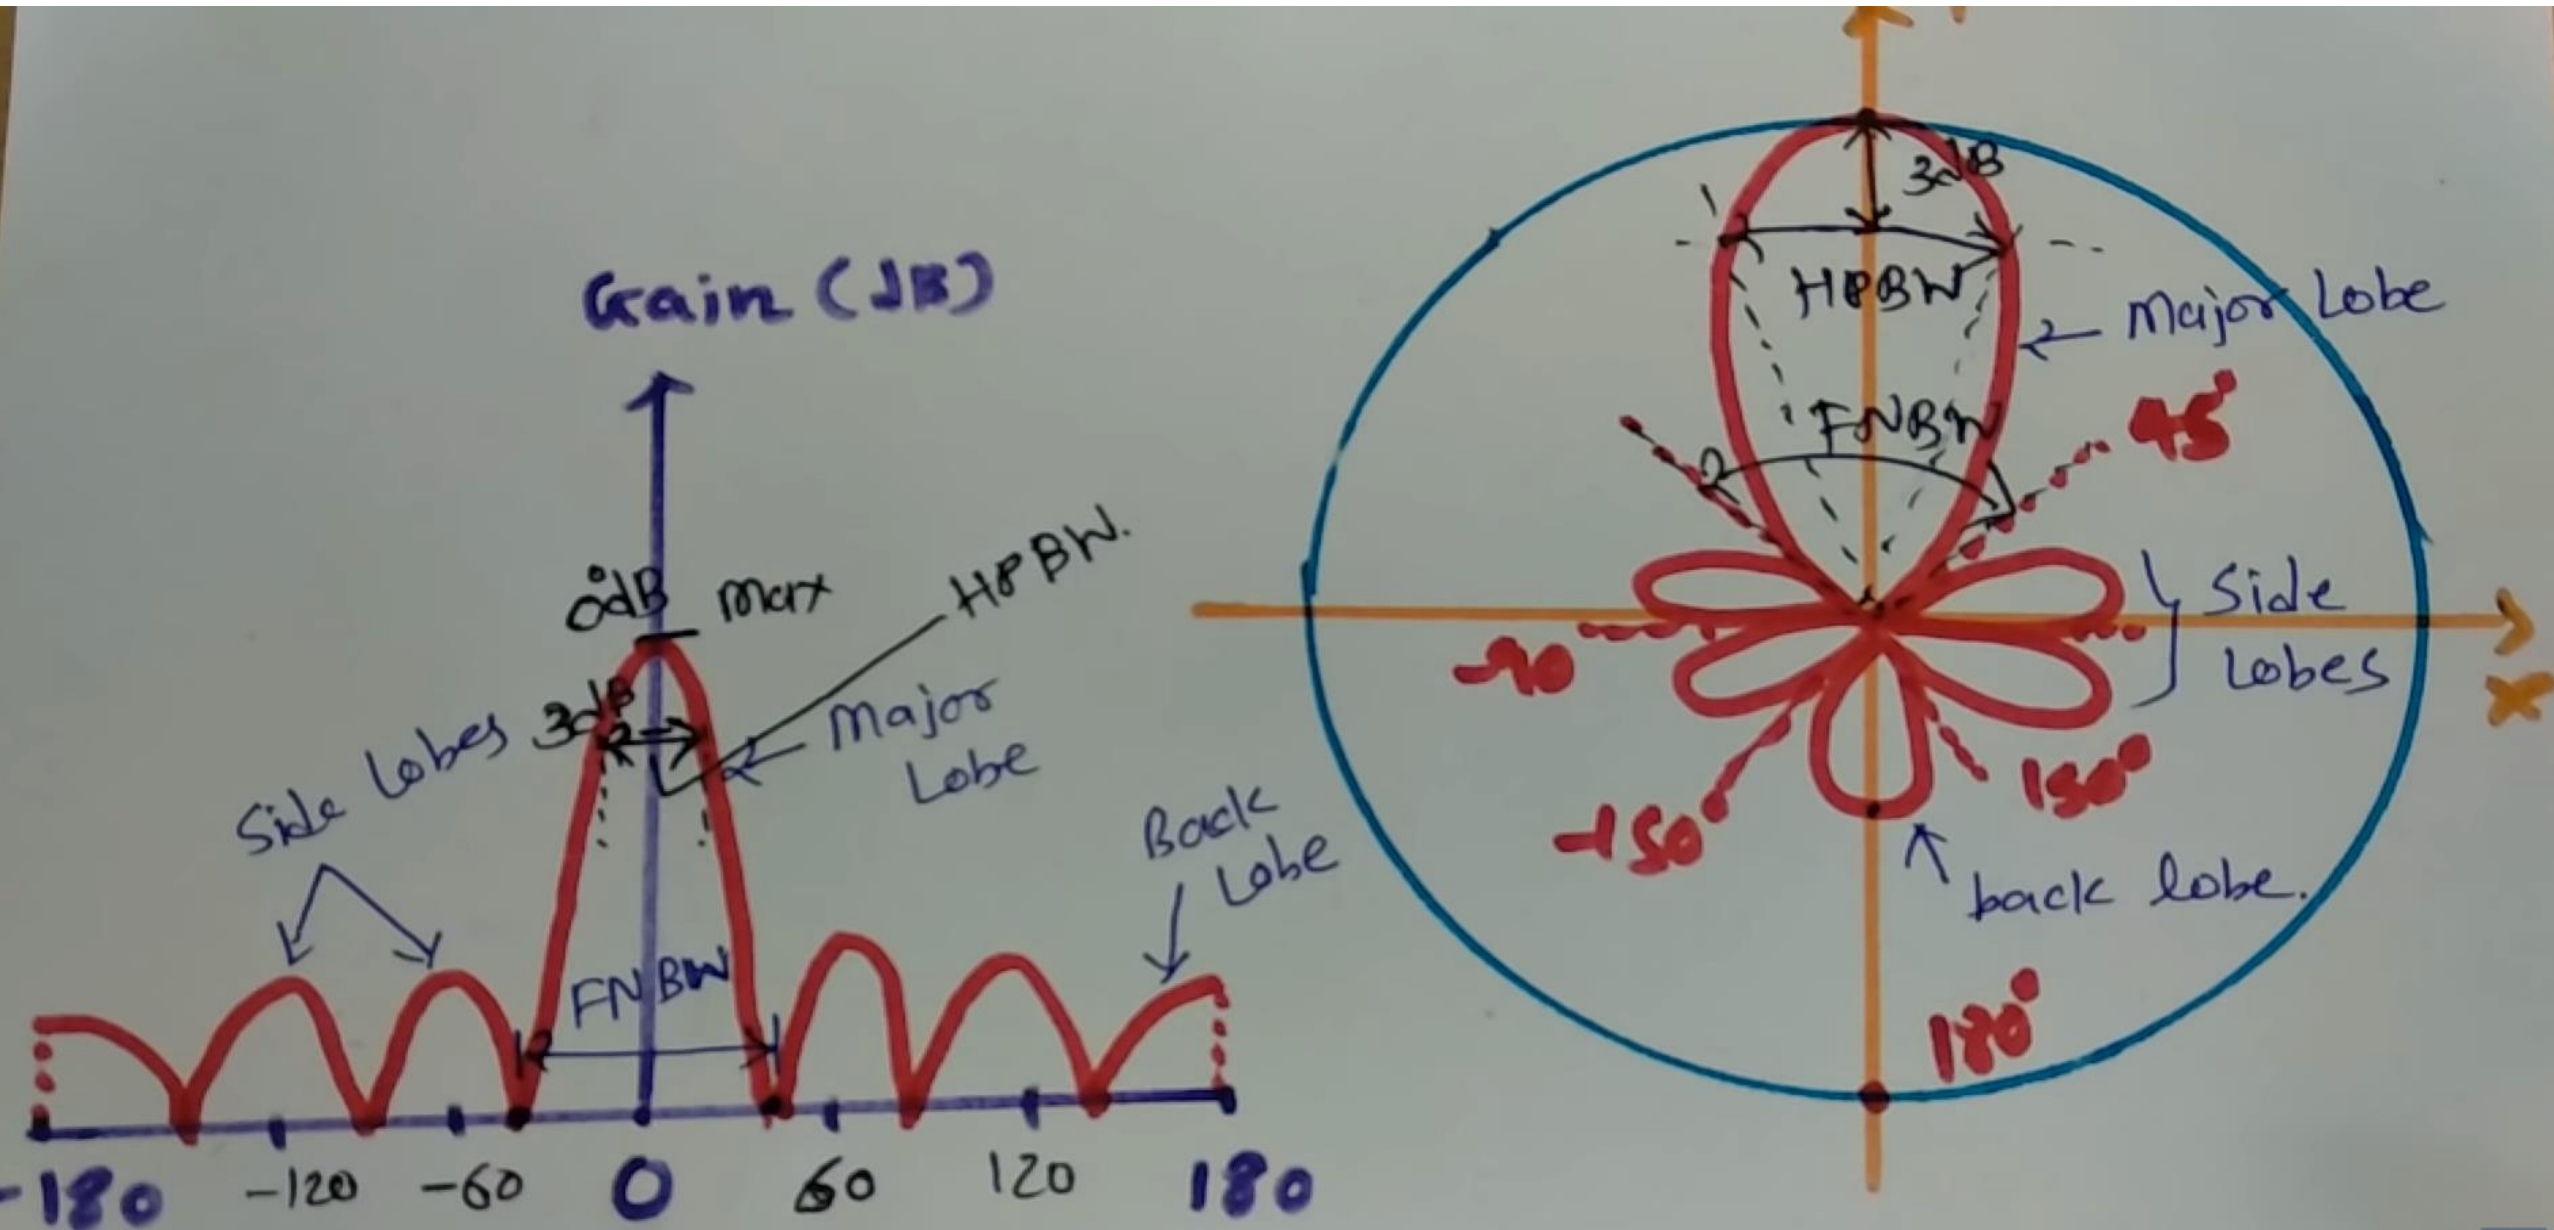 Gain (dB)
0dB max
HPBW.
3dB
Side lobes
Major
Lobe
Back
Lobe
FNBW
-180 -120 -60 0 60 120 180
3dB
HPBW
Major Lobe
FNBW
45°
Side
Lobes
-90
X
150°
-150°
back lobe.
180°